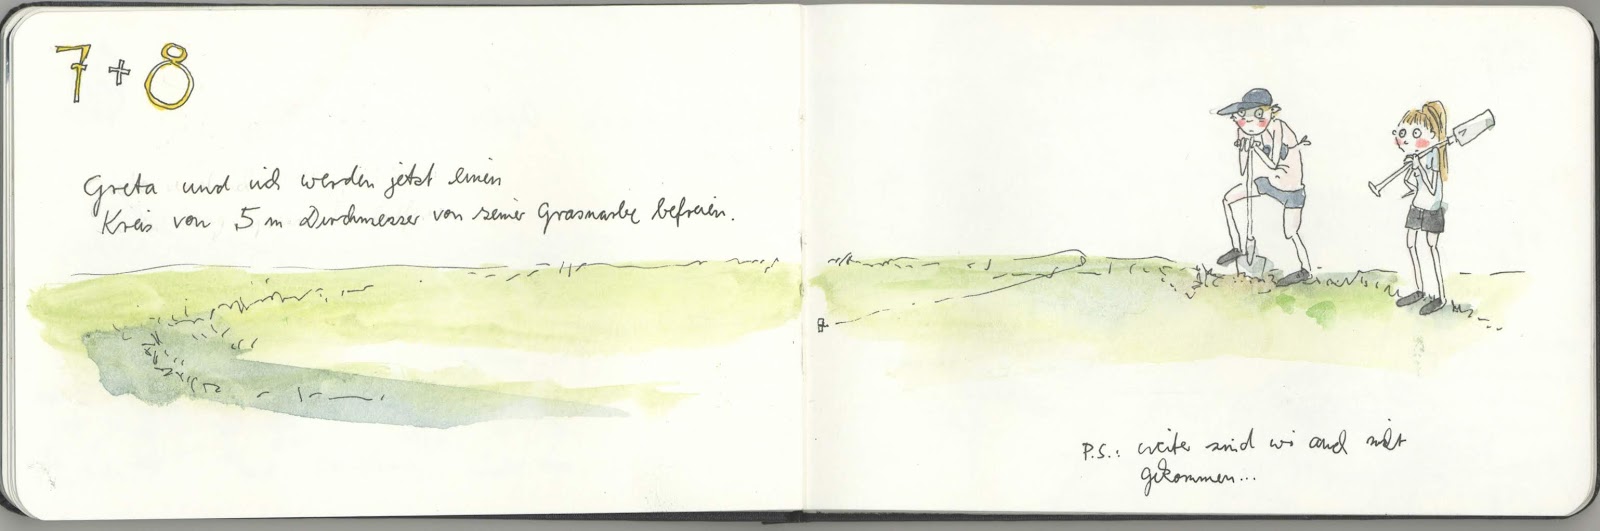 7+8
Greta und ich werden jetzt einen
Kreis von 5 m Durchmesser von seiner Grasnarbe befreien.
P.S.: weiter sind wir auch nicht
gekommen...